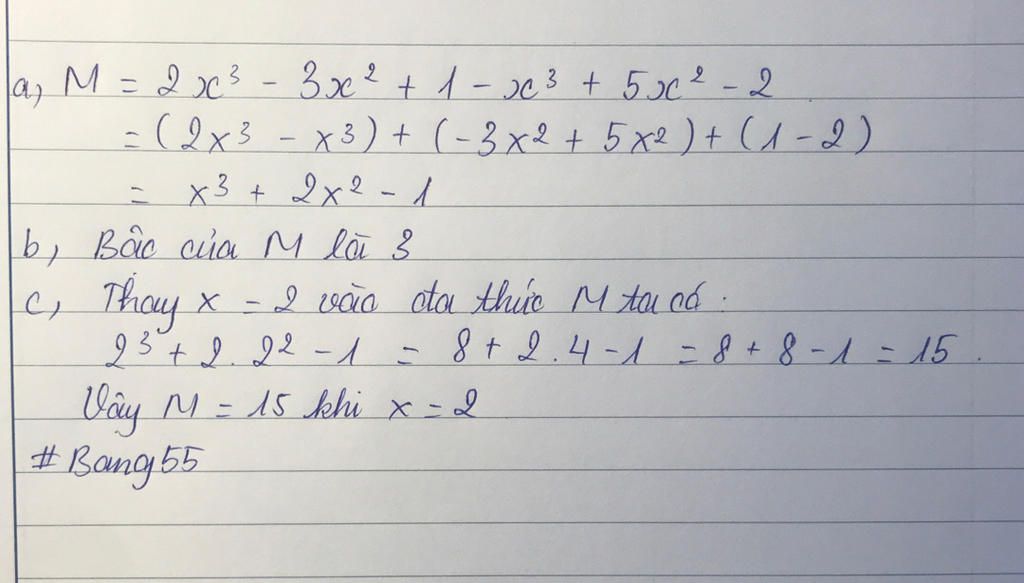 a, M = 2x³ - 3x² + 1 - x³ + 5x² - 2
= (2x³ - x³) + (-3x² + 5x²) + (1 - 2)
= x³ + 2x² - 1
b, Bậc của M là 3
c, Thay x = 2 vào đa thức M ta có:
2³ + 2.2² - 1 = 8 + 2.4 - 1 = 8 + 8 - 1 = 15.
Vậy M = 15 khi x = 2
#Bang55